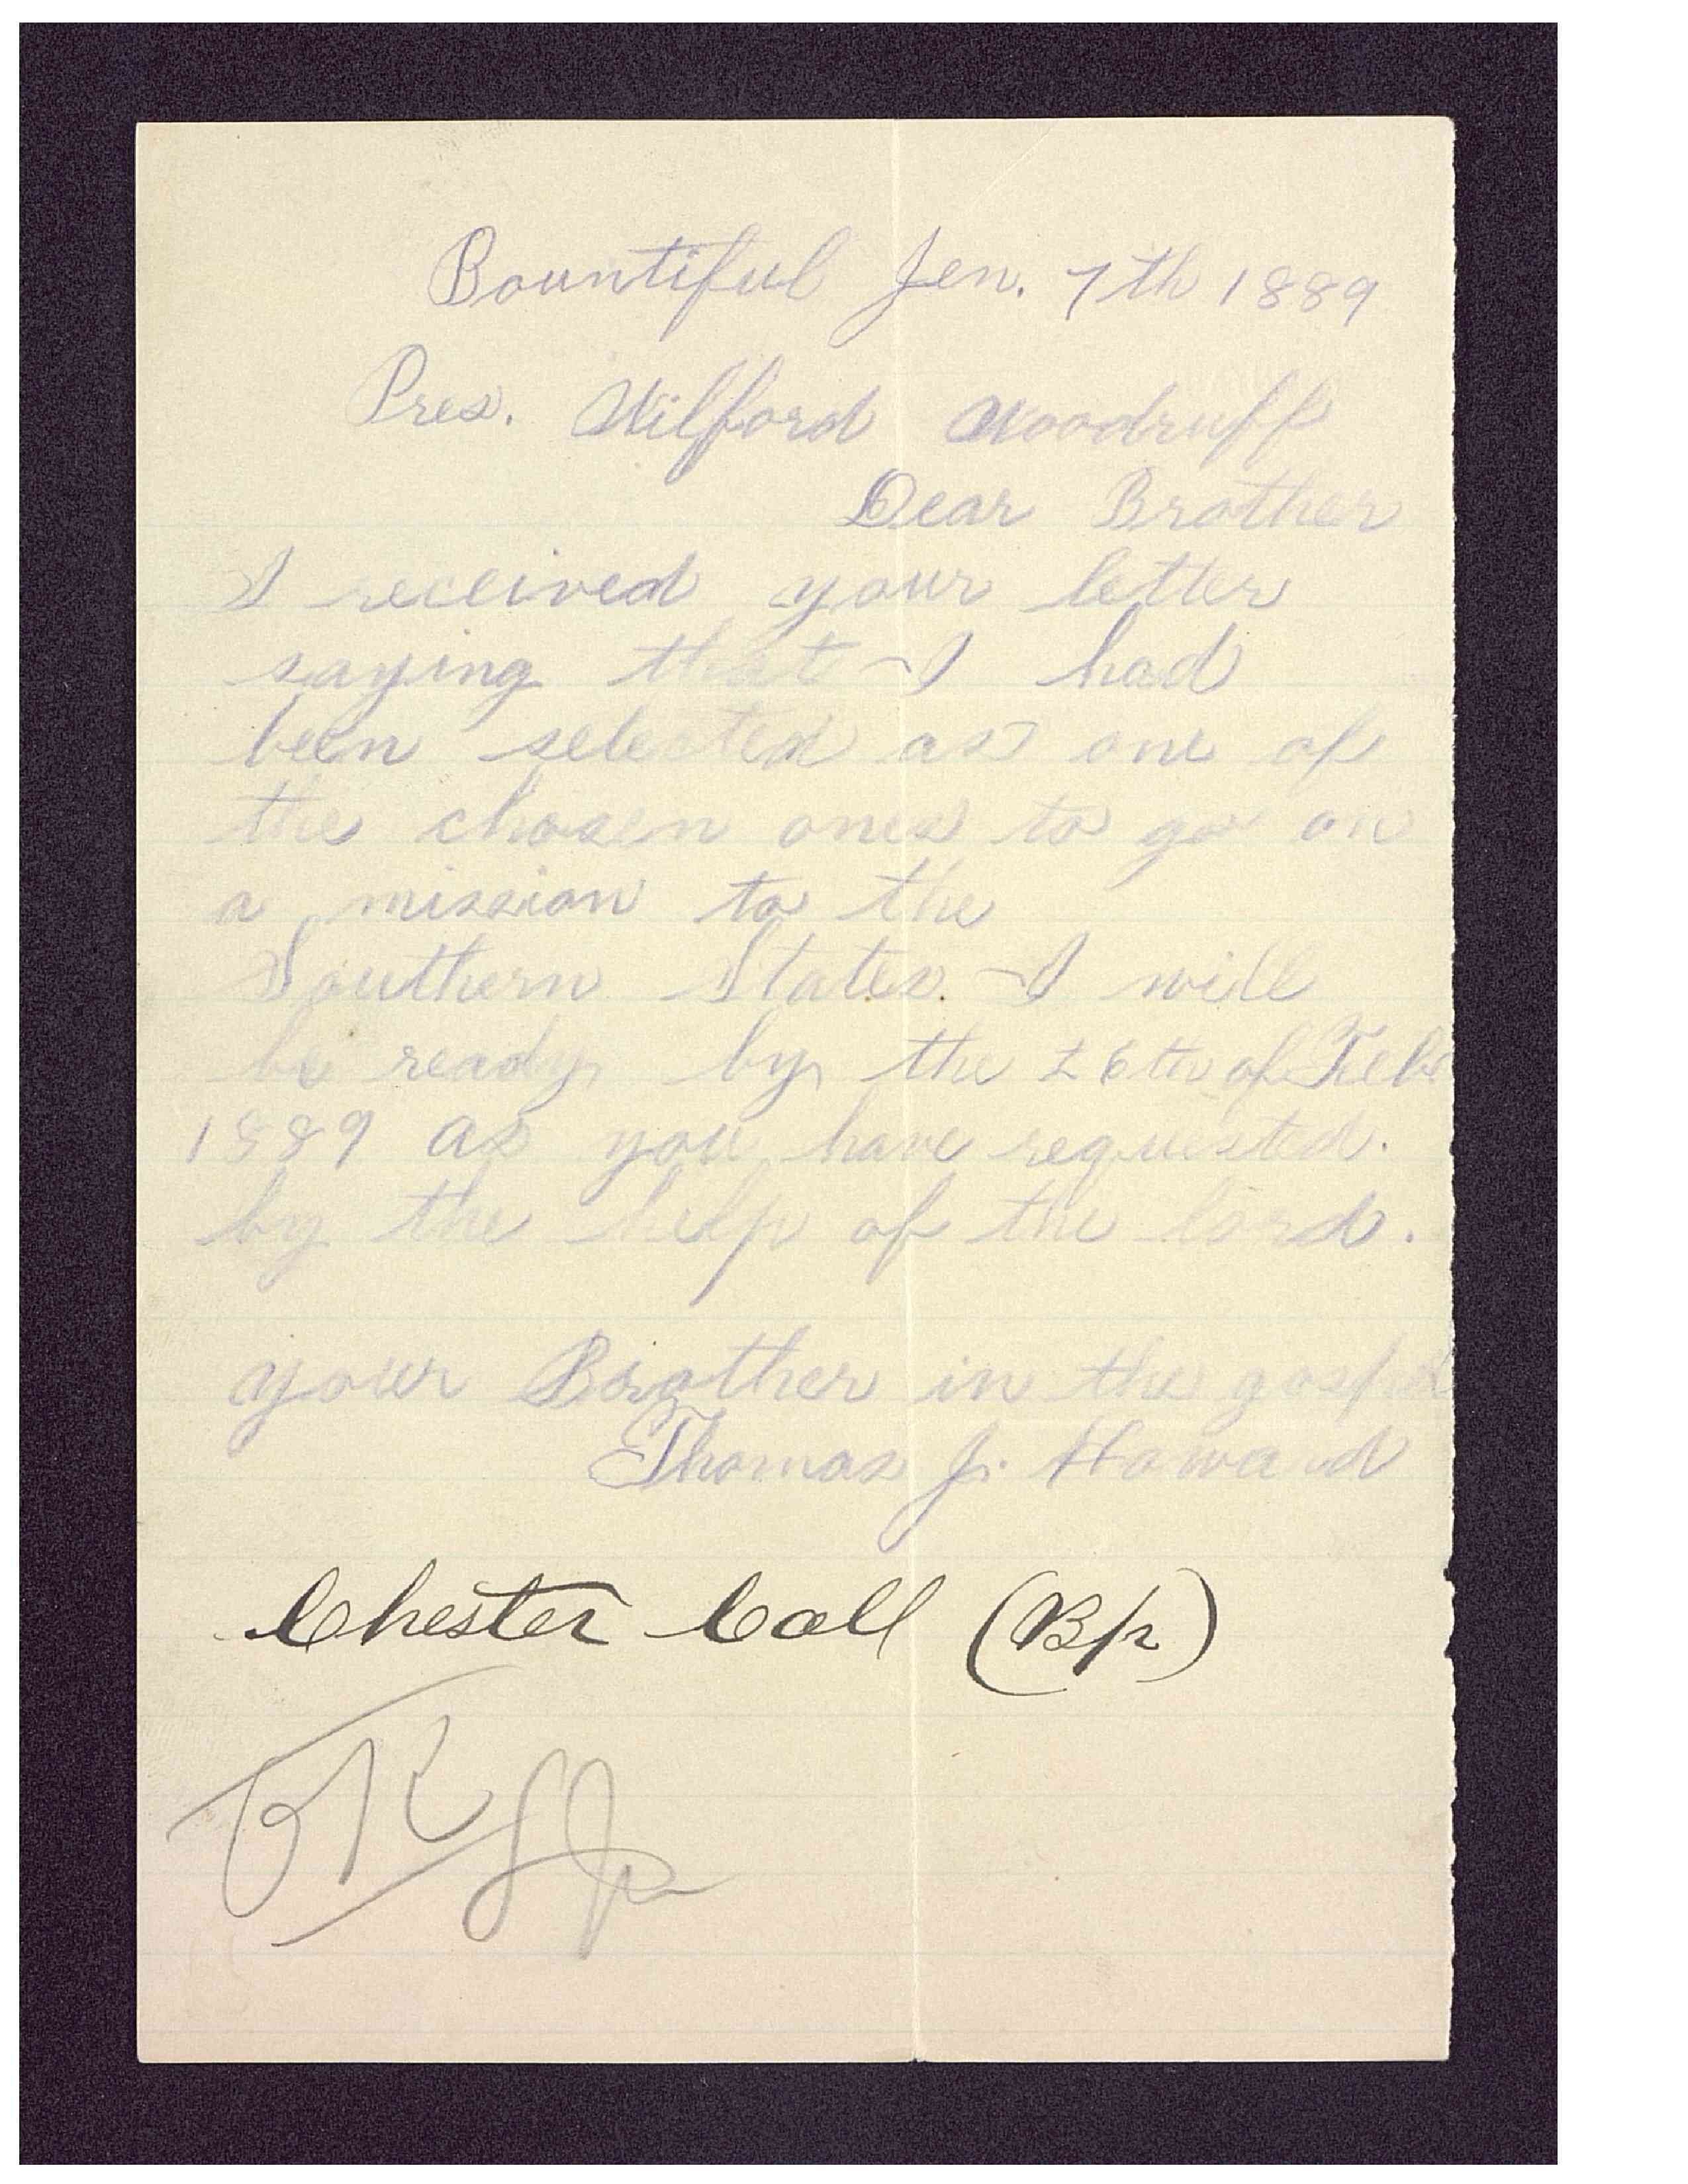 Bountiful Jen. 7th 1889
Pres. Wilford Woodruff
Dear Brother
I received your letter
saying that I had
been selected as one of
the chosen ones to go on
a mission to the
Southern States. I will
be ready by the 26th of Feb
1889 as you have requested.
by the help of the lord.
your Brother in the gospel
Thomas J. Howard
Chester Call (Bp)